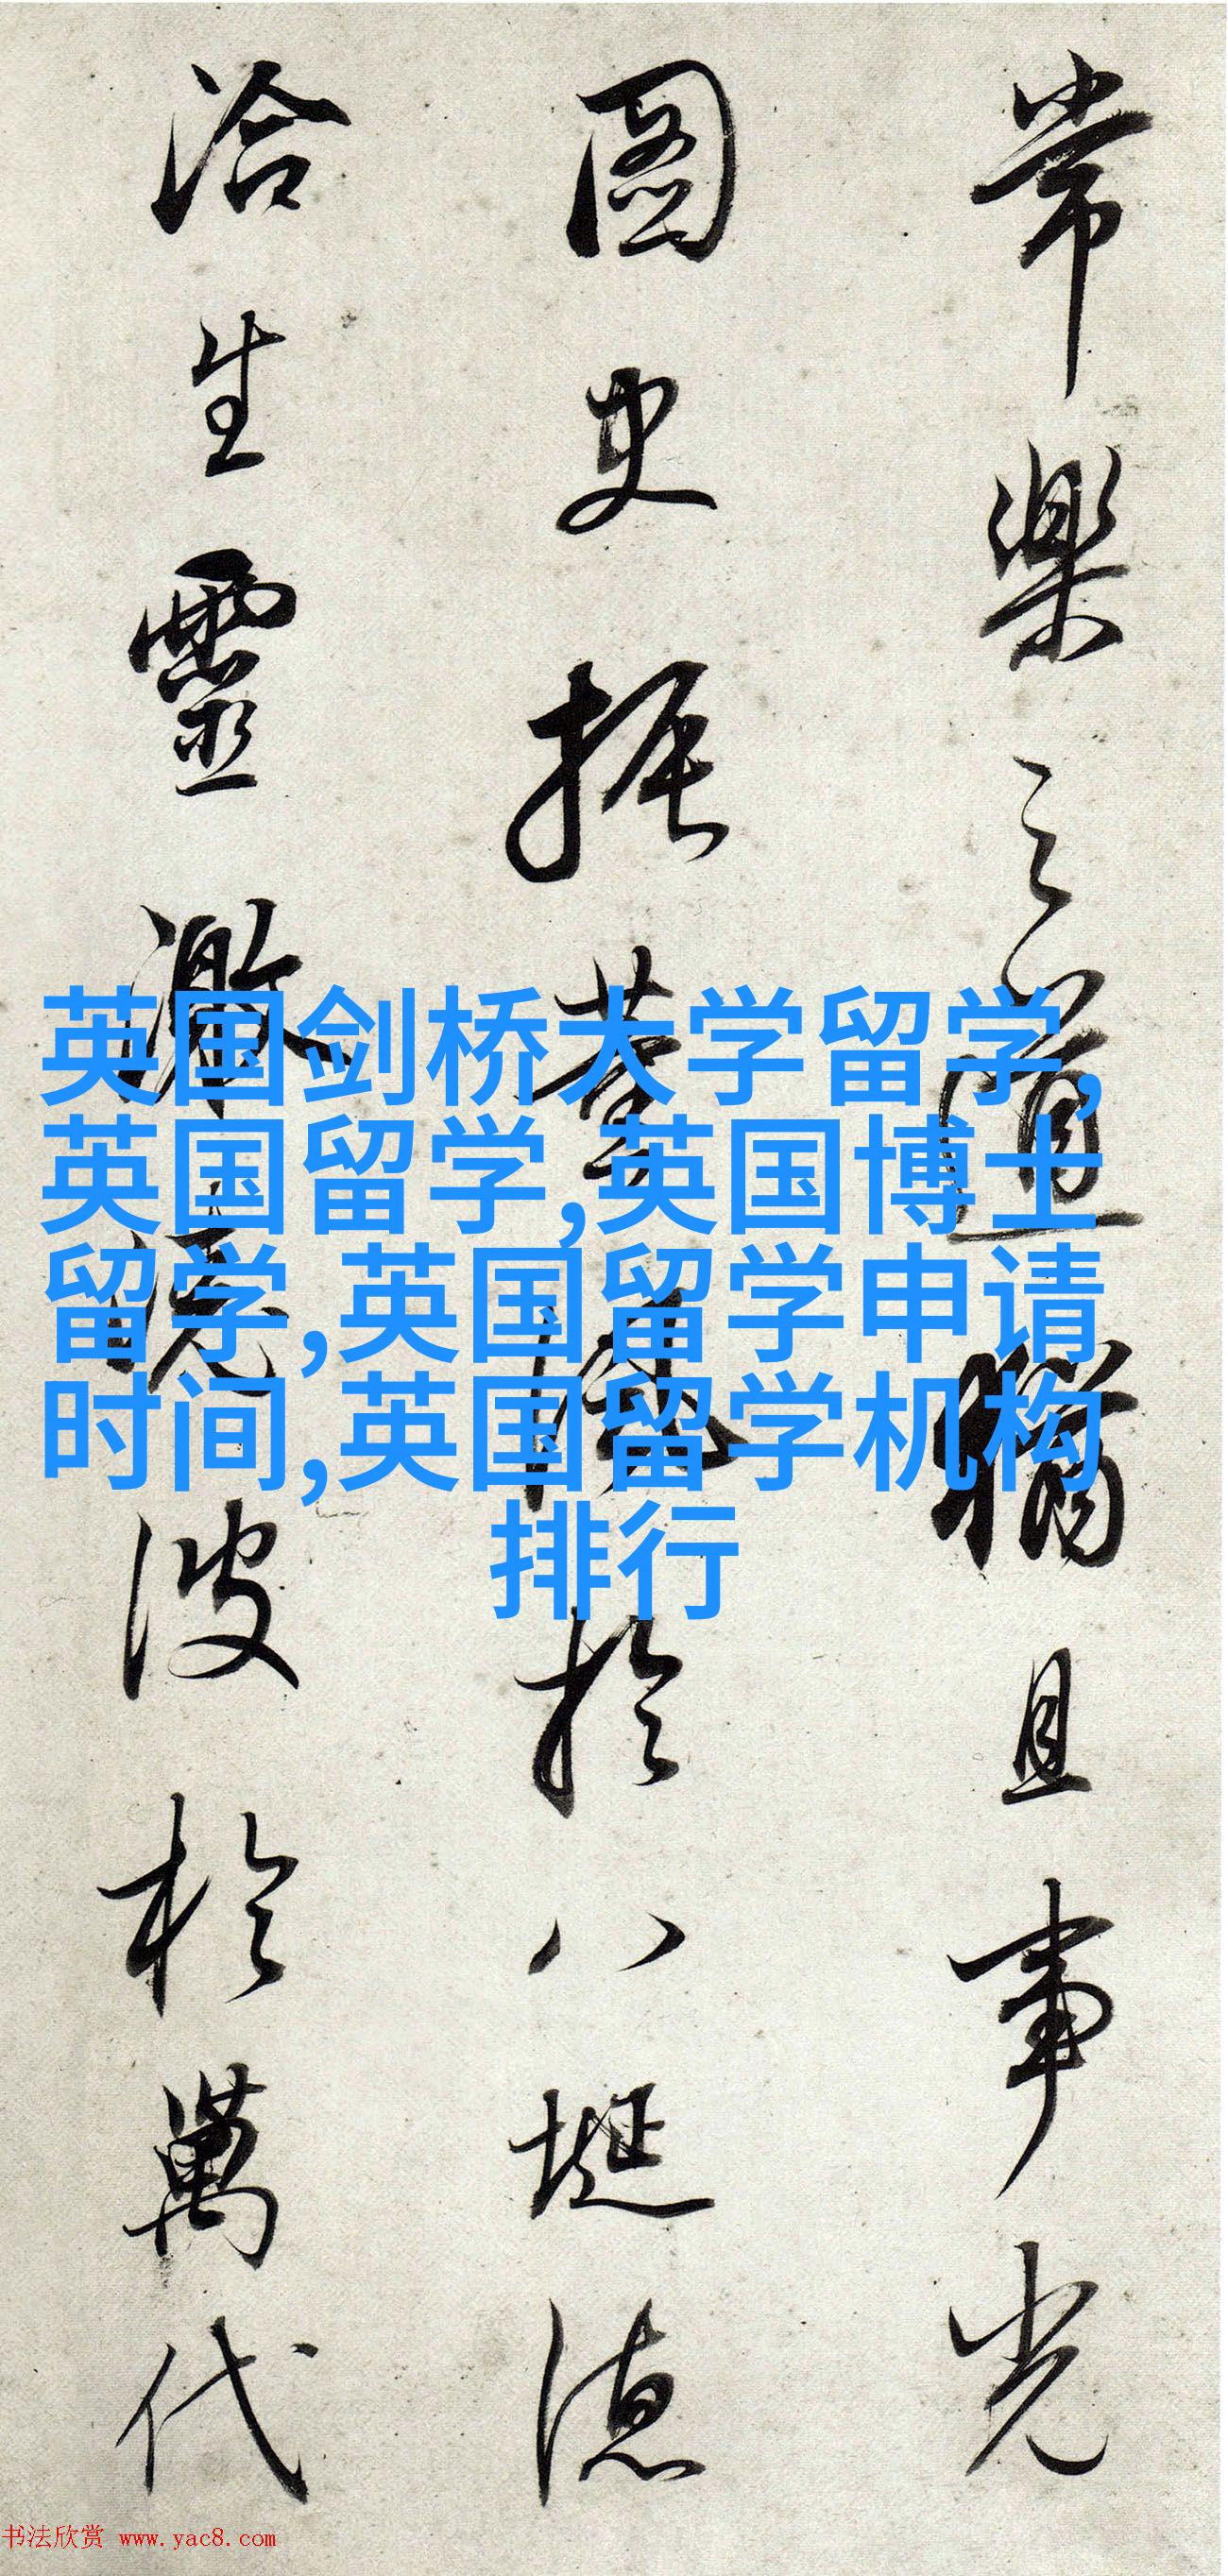 常樂之道且事光
圖史振風於八埏德
洽生靈激波於萬代
英国剑桥大学留学,
英国留学,英国博士
留学,英国留学申请
时间,英国留学机构
排行
书法欣赏 www.yac8.com